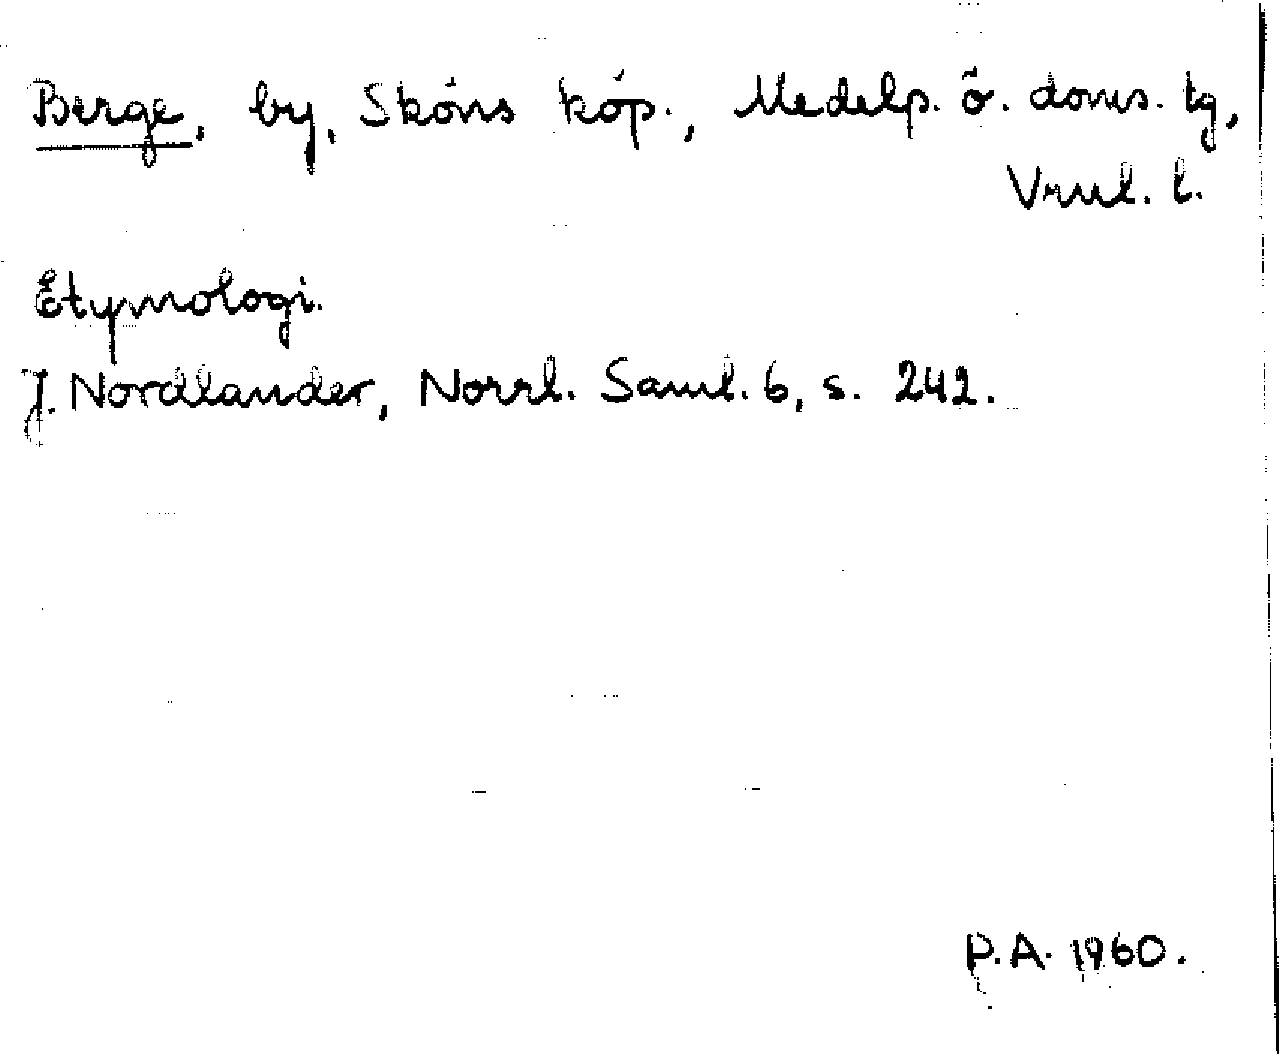 Berge, by, Sköns köp., Medelp. ö. doms. tg,
Vnul. l.
Etymologi.
J. Nordlander, Norrl. Saml. 6, s. 242.
P.A. 1960.